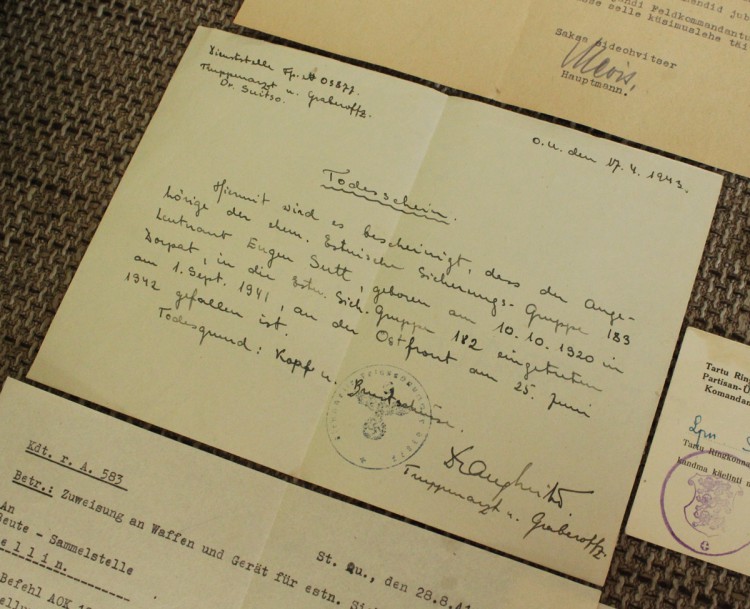 endid jub
andi Feldkommandantu
sse selle küsimuslehe täi
Saksa Sideohvitser
Hauptmann.
Dienststelle Fp. № 03877.
Truppenarzt u. Graberoffz.
Dr. Suitso.
O. U. den 17. 4. 1943.
Todesschein.
Hiermit wird es bescheinigt, dass der Ange-
hörige der ehem. Estnische Sicherungs-Gruppe 183
Leutnant Eugen Sutt, geboren am 10. 10. 1920 in
Dorpat, in die Estn. Sich. Gruppe 182 eingetreten
am 1. Sept. 1941, an der Ostfront am 25. Juni
1942 gefallen ist.
Todesgrund: Kopf u.
Truppenarzt u. Graberoffz.
Kdt. r. A. 583
Betr.: Zuweisung an Waffen und Gerät für estn. Si
An
Beute - Sammelstelle
e l l i n.
St. Qu., den 28.8.41
Befehl AOK 18
Tartu Rin
Partisan-O
Komandan
Tartu Ringkonna